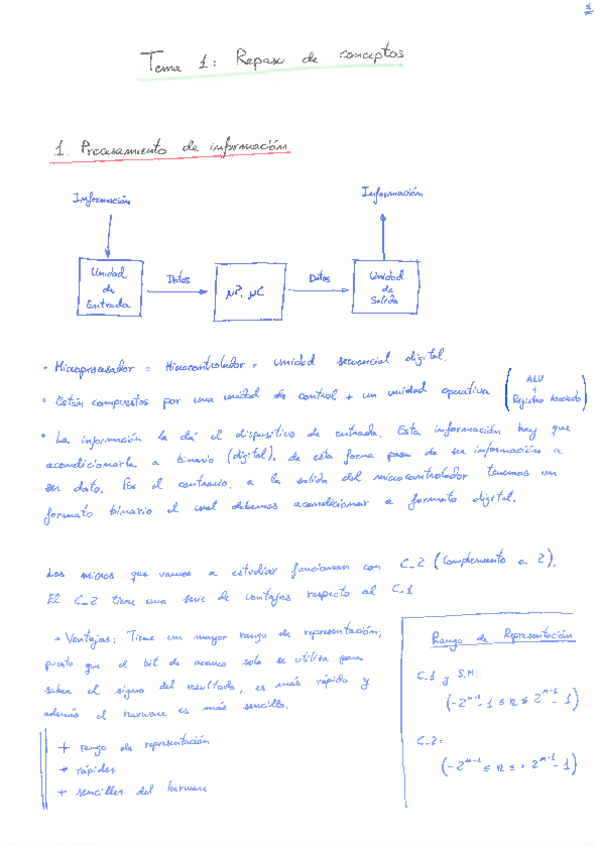 1
Tema 1: Repaso de conceptos
1. Procesamiento de información
Información
Información
Unidad de Entrada
Datos
µP, µC
Datos
Unidad de Salida
• Microprocesador = Microcontrolador = unidad secuencial digital.
• Están compuestos por una unidad de control + un unidad operativa (ALU + Registro Asociado)
• La información la dá el dispositivo de entrada. Esta información hay que
acondicionarla a binario (digital), de esta forma pasa de ser información a
ser dato. Por el contrario, a la salida del microcontrolador tenemos un
formato binario el cual debemos acondicionar a formato digital.
Los micros que vamos a estudiar funcionan con C_2 (Complemento a 2).
El C_2 tiene una serie de ventajas respecto al C_1
→ Ventajas: Tiene un mayor rango de representación,
puesto que el bit de acarreo solo se utiliza para
saber el signo del resultado, es más rápido y
además el harware es más sencillo.
+ rango de representación
+ rápidez
+ sencillez del harware
Rango de Representación
C_1 y S.M:
(-2ⁿ⁻¹-1 ≤ n ≤ 2ⁿ⁻¹-1)
C_2:
(-2ⁿ⁻¹ ≤ n ≤ + 2ⁿ⁻¹-1)